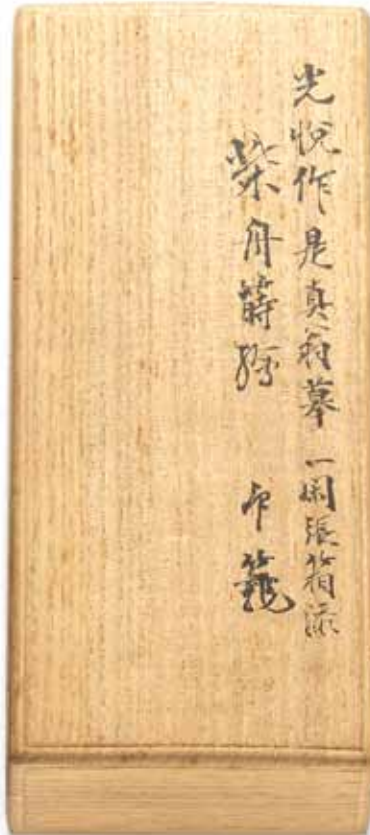 光悦作 是真翁摹 一閑張箱添
柴舟蒔絵 印籠